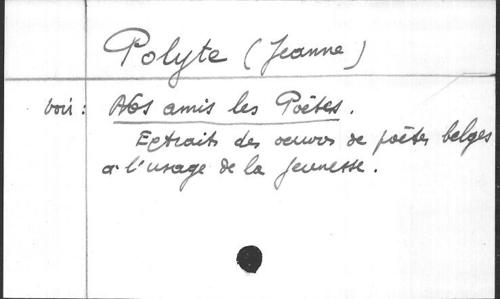 Polyte (Jeanne)
voir : Nos amis les Poètes.
Extraits des oeuvres de poètes belges
à l'usage de la Jeunesse.